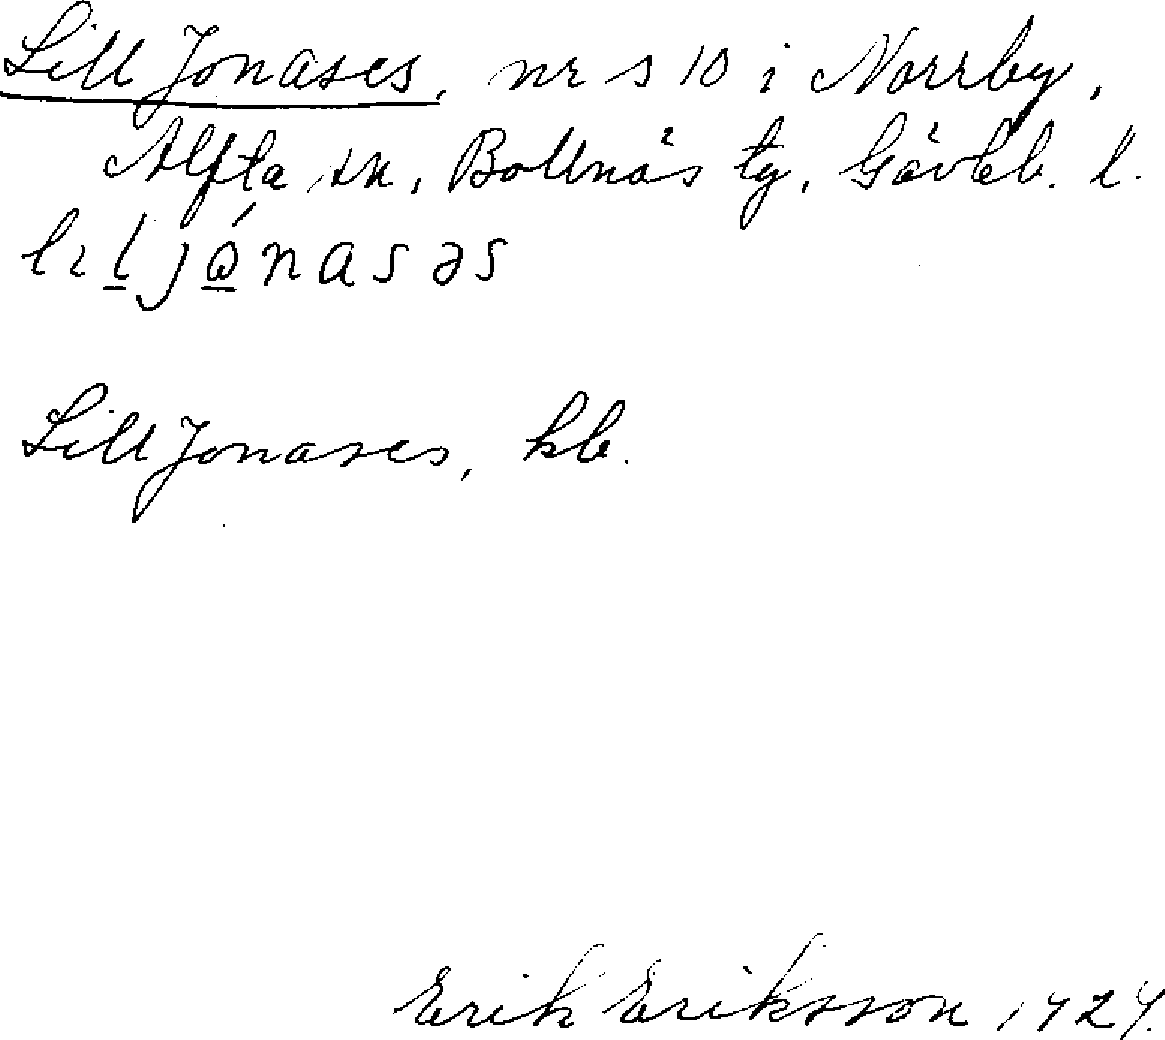 Lill Jonases, nr s 10 i Norrby,
Alfta sn, Bollnäs tg, Gävleb. l.
lɩljónasəs
Lill Jonases, kb.
Erik Eriksson 1924.